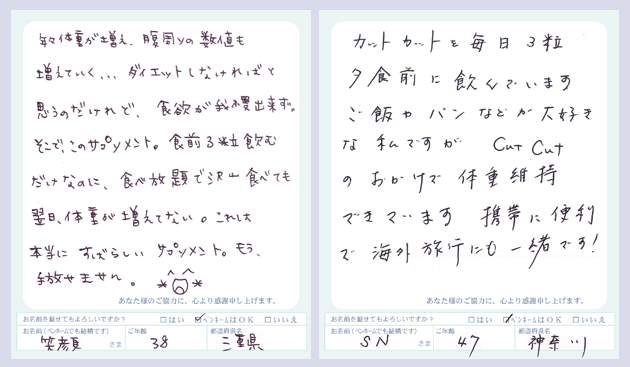 年々体重が増え、腹周りの数値も
増えていく、、、ダイエットしなければと
思うのだけれど、食欲が我慢出来ず。
そこで、このサプリメント。食前3粒飲む
だけなのに、食べ放題で沢山食べても
翌日、体重が増えてない。これは
本当にすばらしいサプリメント。もう、
手放せません。
あなた様のご協力に、心より感謝申し上げます。
お名前を載せてもよろしいですか? □はい ☑ペンネームはOK □いいえ
お名前(ペンネームでも結構です) ご年齢 都道府県名
笑顔 さま 38 三重県
カットカットを毎日3粒
夕食前に飲んでいます
ご飯やパンなどが大好き
な私ですが Cut Cut
のおかげで体重維持
できています 携帯に便利
で海外旅行にも一緒です!
あなた様のご協力に、心より感謝申し上げます。
お名前を載せてもよろしいですか? □はい ☑ペンネームはOK □いいえ
お名前(ペンネームでも結構です) ご年齢 都道府県名
SN さま 47 神奈川